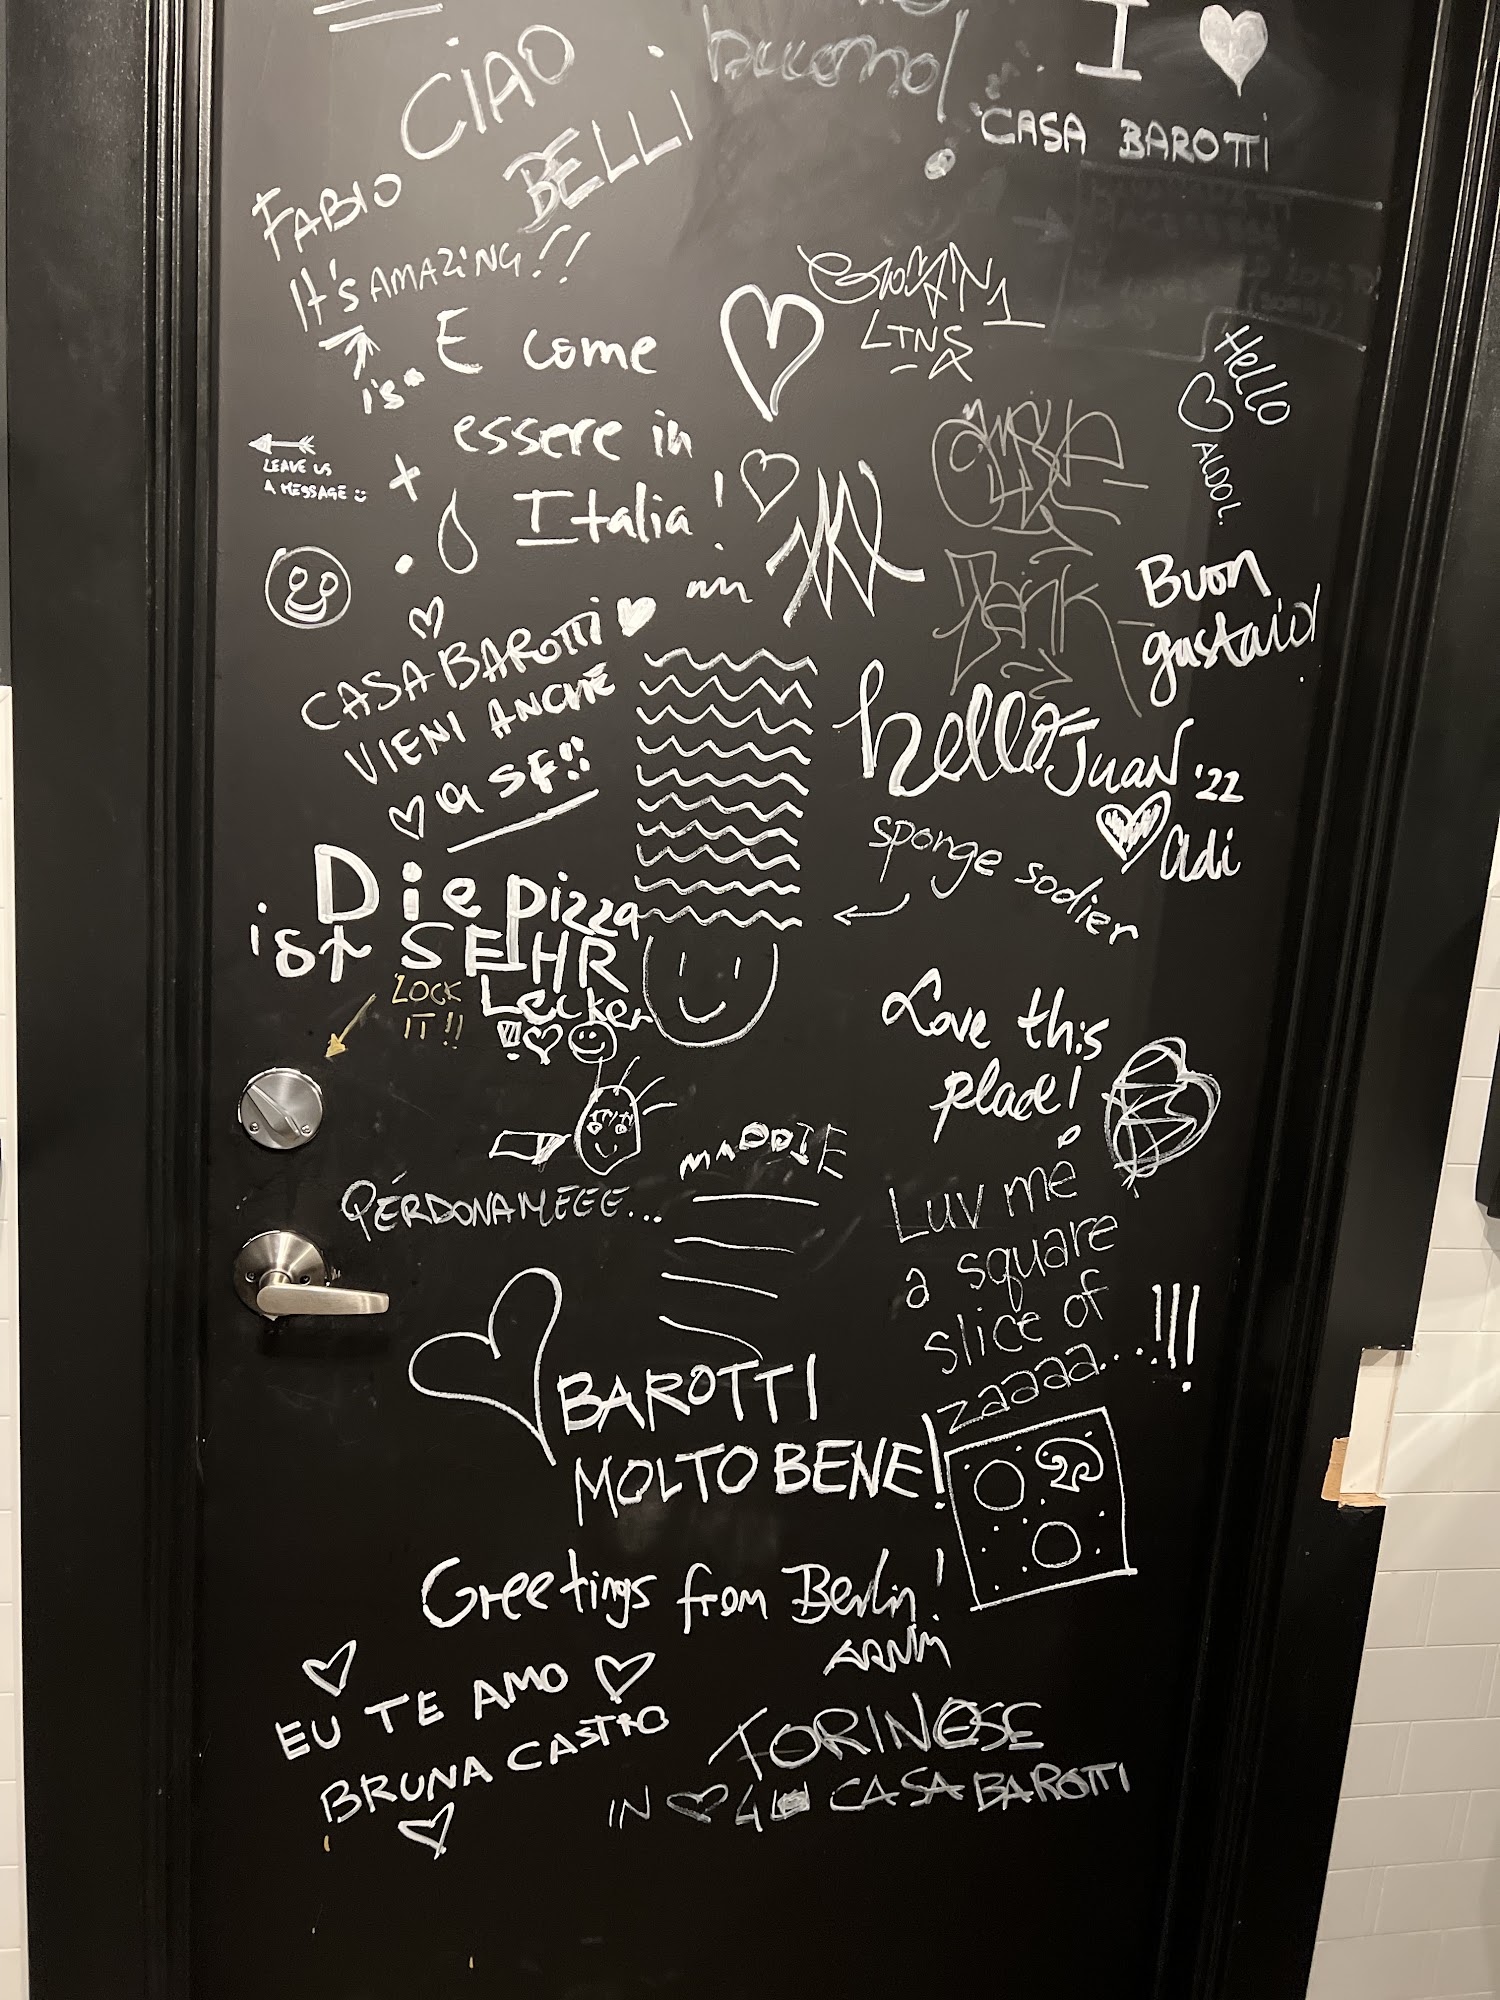 I ♥
CASA BAROTTI
buono!
CIAO
BELLI
FABIO
It's AMAZING!!
is"
E come
essere in
Italia!
LEAVE US
A MESSAGE
Hello
ALDO!
Buon
CASA BAROTTI
VIENI ANCHE
a SF!!
hello
JUAN '22
adi
sponge sodier
Die pizza
ist SEHR
Lecker
!!
LOCK
IT!!
Love this
place!
MADDIE
PÉRDONAMEEE...
Luv me
a square
slice of
zaaaa...!!!
BAROTTI
MOLTO BENE!
Greetings from Berlin!
EU TE AMO
BRUNA CASTRO
TORINESE
IN ♥ 4 CASA BAROTTI